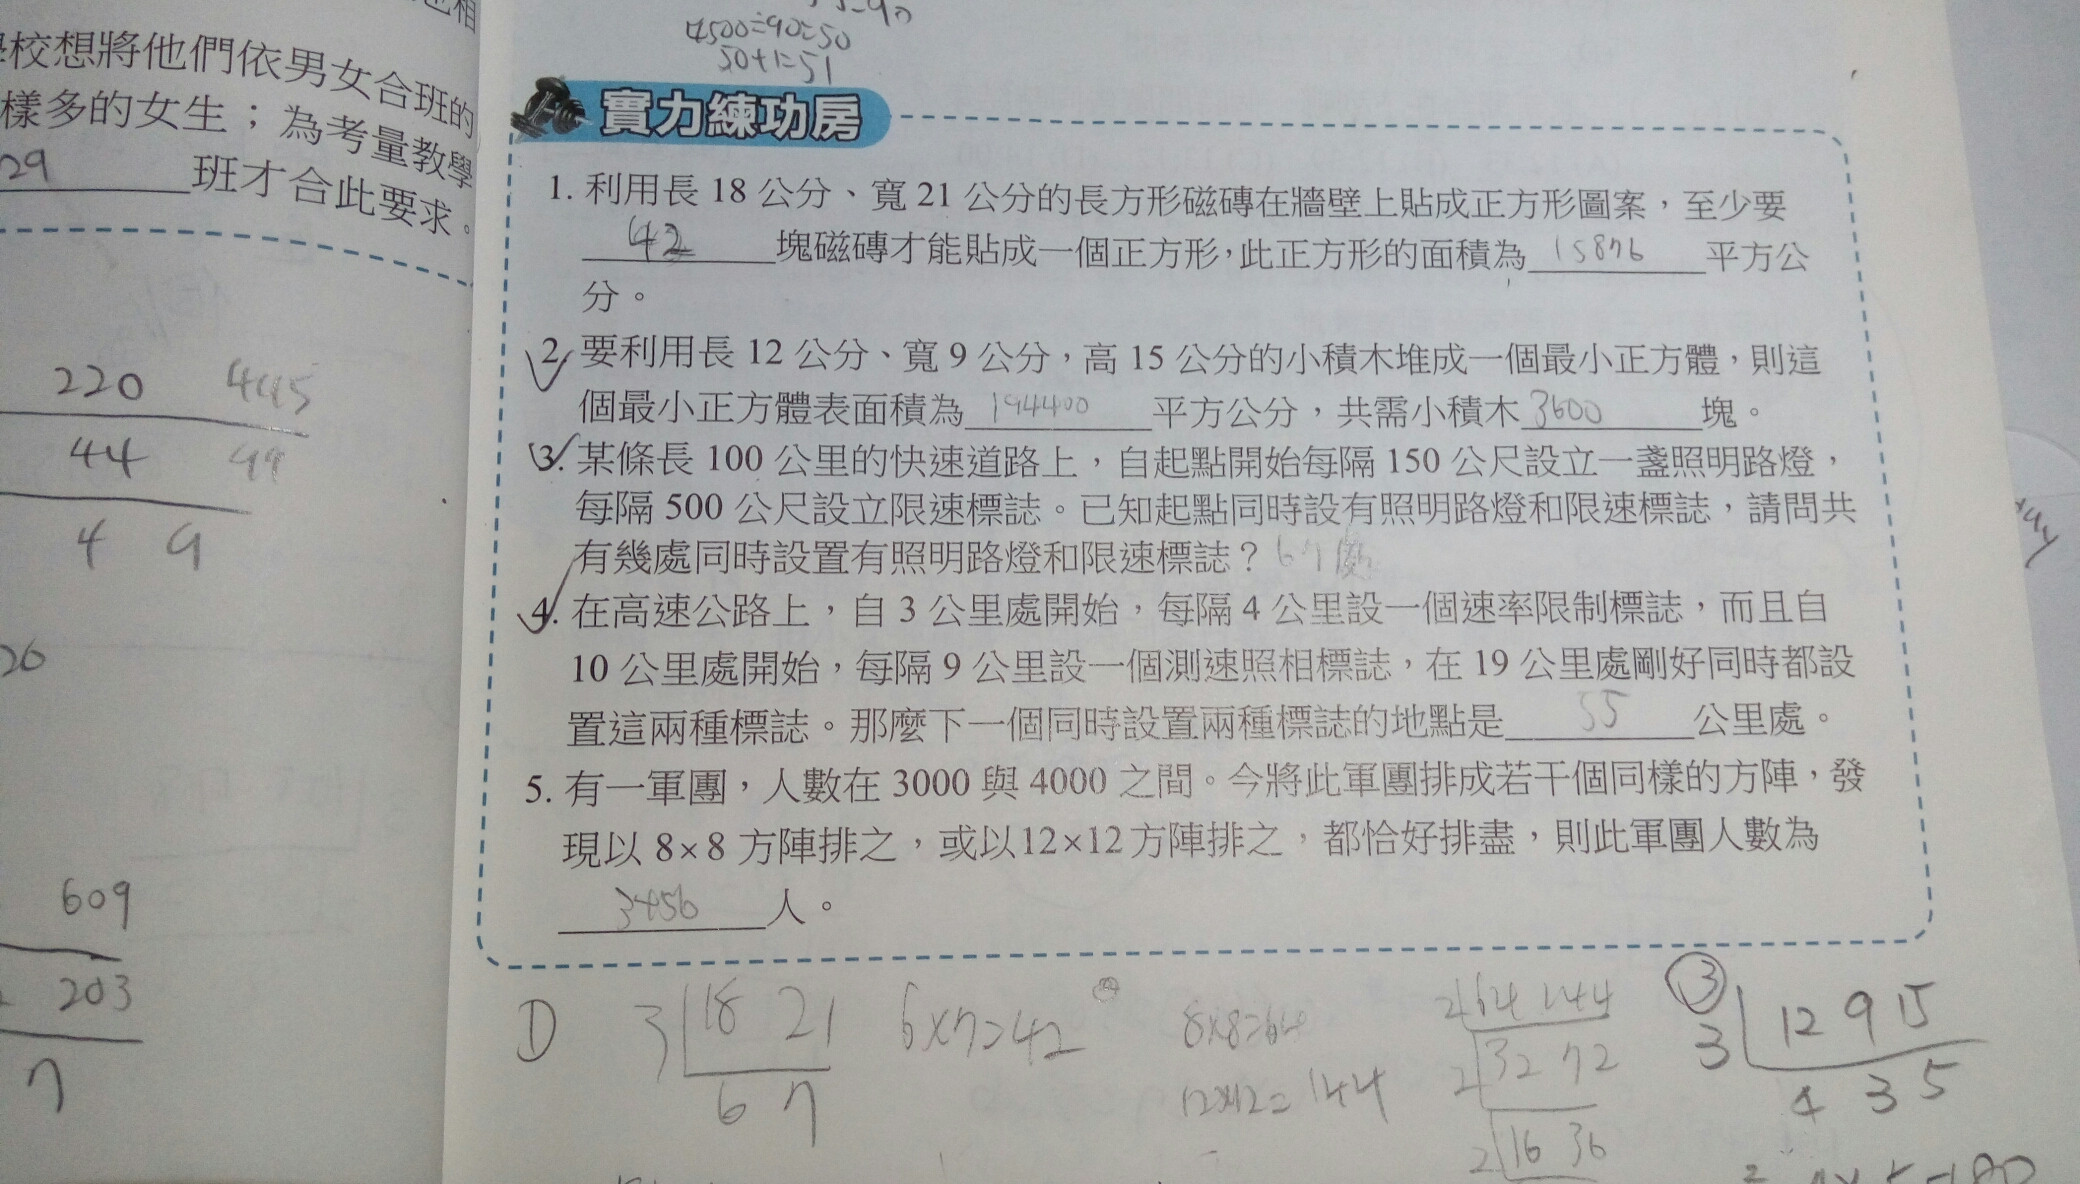 學校想將他們依男女合班的
樣多的女生；為考量教學
29 班才合此要求。
220 445
44 99
4 9
26
609
203
7
4500÷90=50
50+1=51
實力練功房
1. 利用長 18 公分、寬 21 公分的長方形磁磚在牆壁上貼成正方形圖案，至少要
42 塊磁磚才能貼成一個正方形，此正方形的面積為 15876 平方公
分。
2. 要利用長 12 公分、寬 9 公分，高 15 公分的小積木堆成一個最小正方體，則這
個最小正方體表面積為 194400 平方公分，共需小積木 3600 塊。
3. 某條長 100 公里的快速道路上，自起點開始每隔 150 公尺設立一盞照明路燈，
每隔 500 公尺設立限速標誌。已知起點同時設有照明路燈和限速標誌，請問共
有幾處同時設置有照明路燈和限速標誌？67處
4. 在高速公路上，自 3 公里處開始，每隔 4 公里設一個速率限制標誌，而且自
10 公里處開始，每隔 9 公里設一個測速照相標誌，在 19 公里處剛好同時都設
置這兩種標誌。那麼下一個同時設置兩種標誌的地點是 55 公里處。
5. 有一軍團，人數在 3000 與 4000 之間。今將此軍團排成若干個同樣的方陣，發
現以 8×8 方陣排之，或以12×12方陣排之，都恰好排盡，則此軍團人數為
3456 人。
3 18 21
6 7
6×7=42
8×8=64
12×12=144
2 64 144
2 32 72
2 16 36
③
3 12 9 15
4 3 5